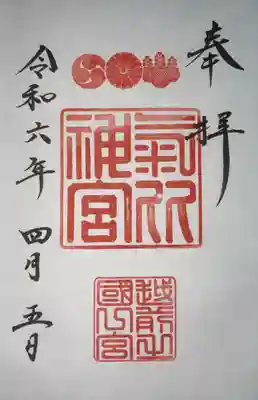 奉拝
氣比神宮
越前之
國一宮
令和六年 四月 五日